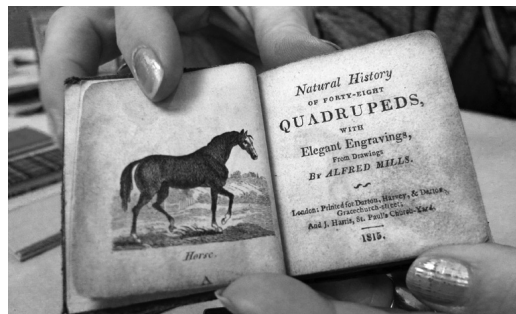 Horse.
A
Natural History
OF FORTY-EIGHT
QUADRUPEDS,
WITH
Elegant Engravings,
From Drawings
BY ALFRED MILLS.
London: Printed for Darton, Harvey, & Darton,
Gracechurch-street;
And J. Harris, St. Paul's Church-Yard.
1815.